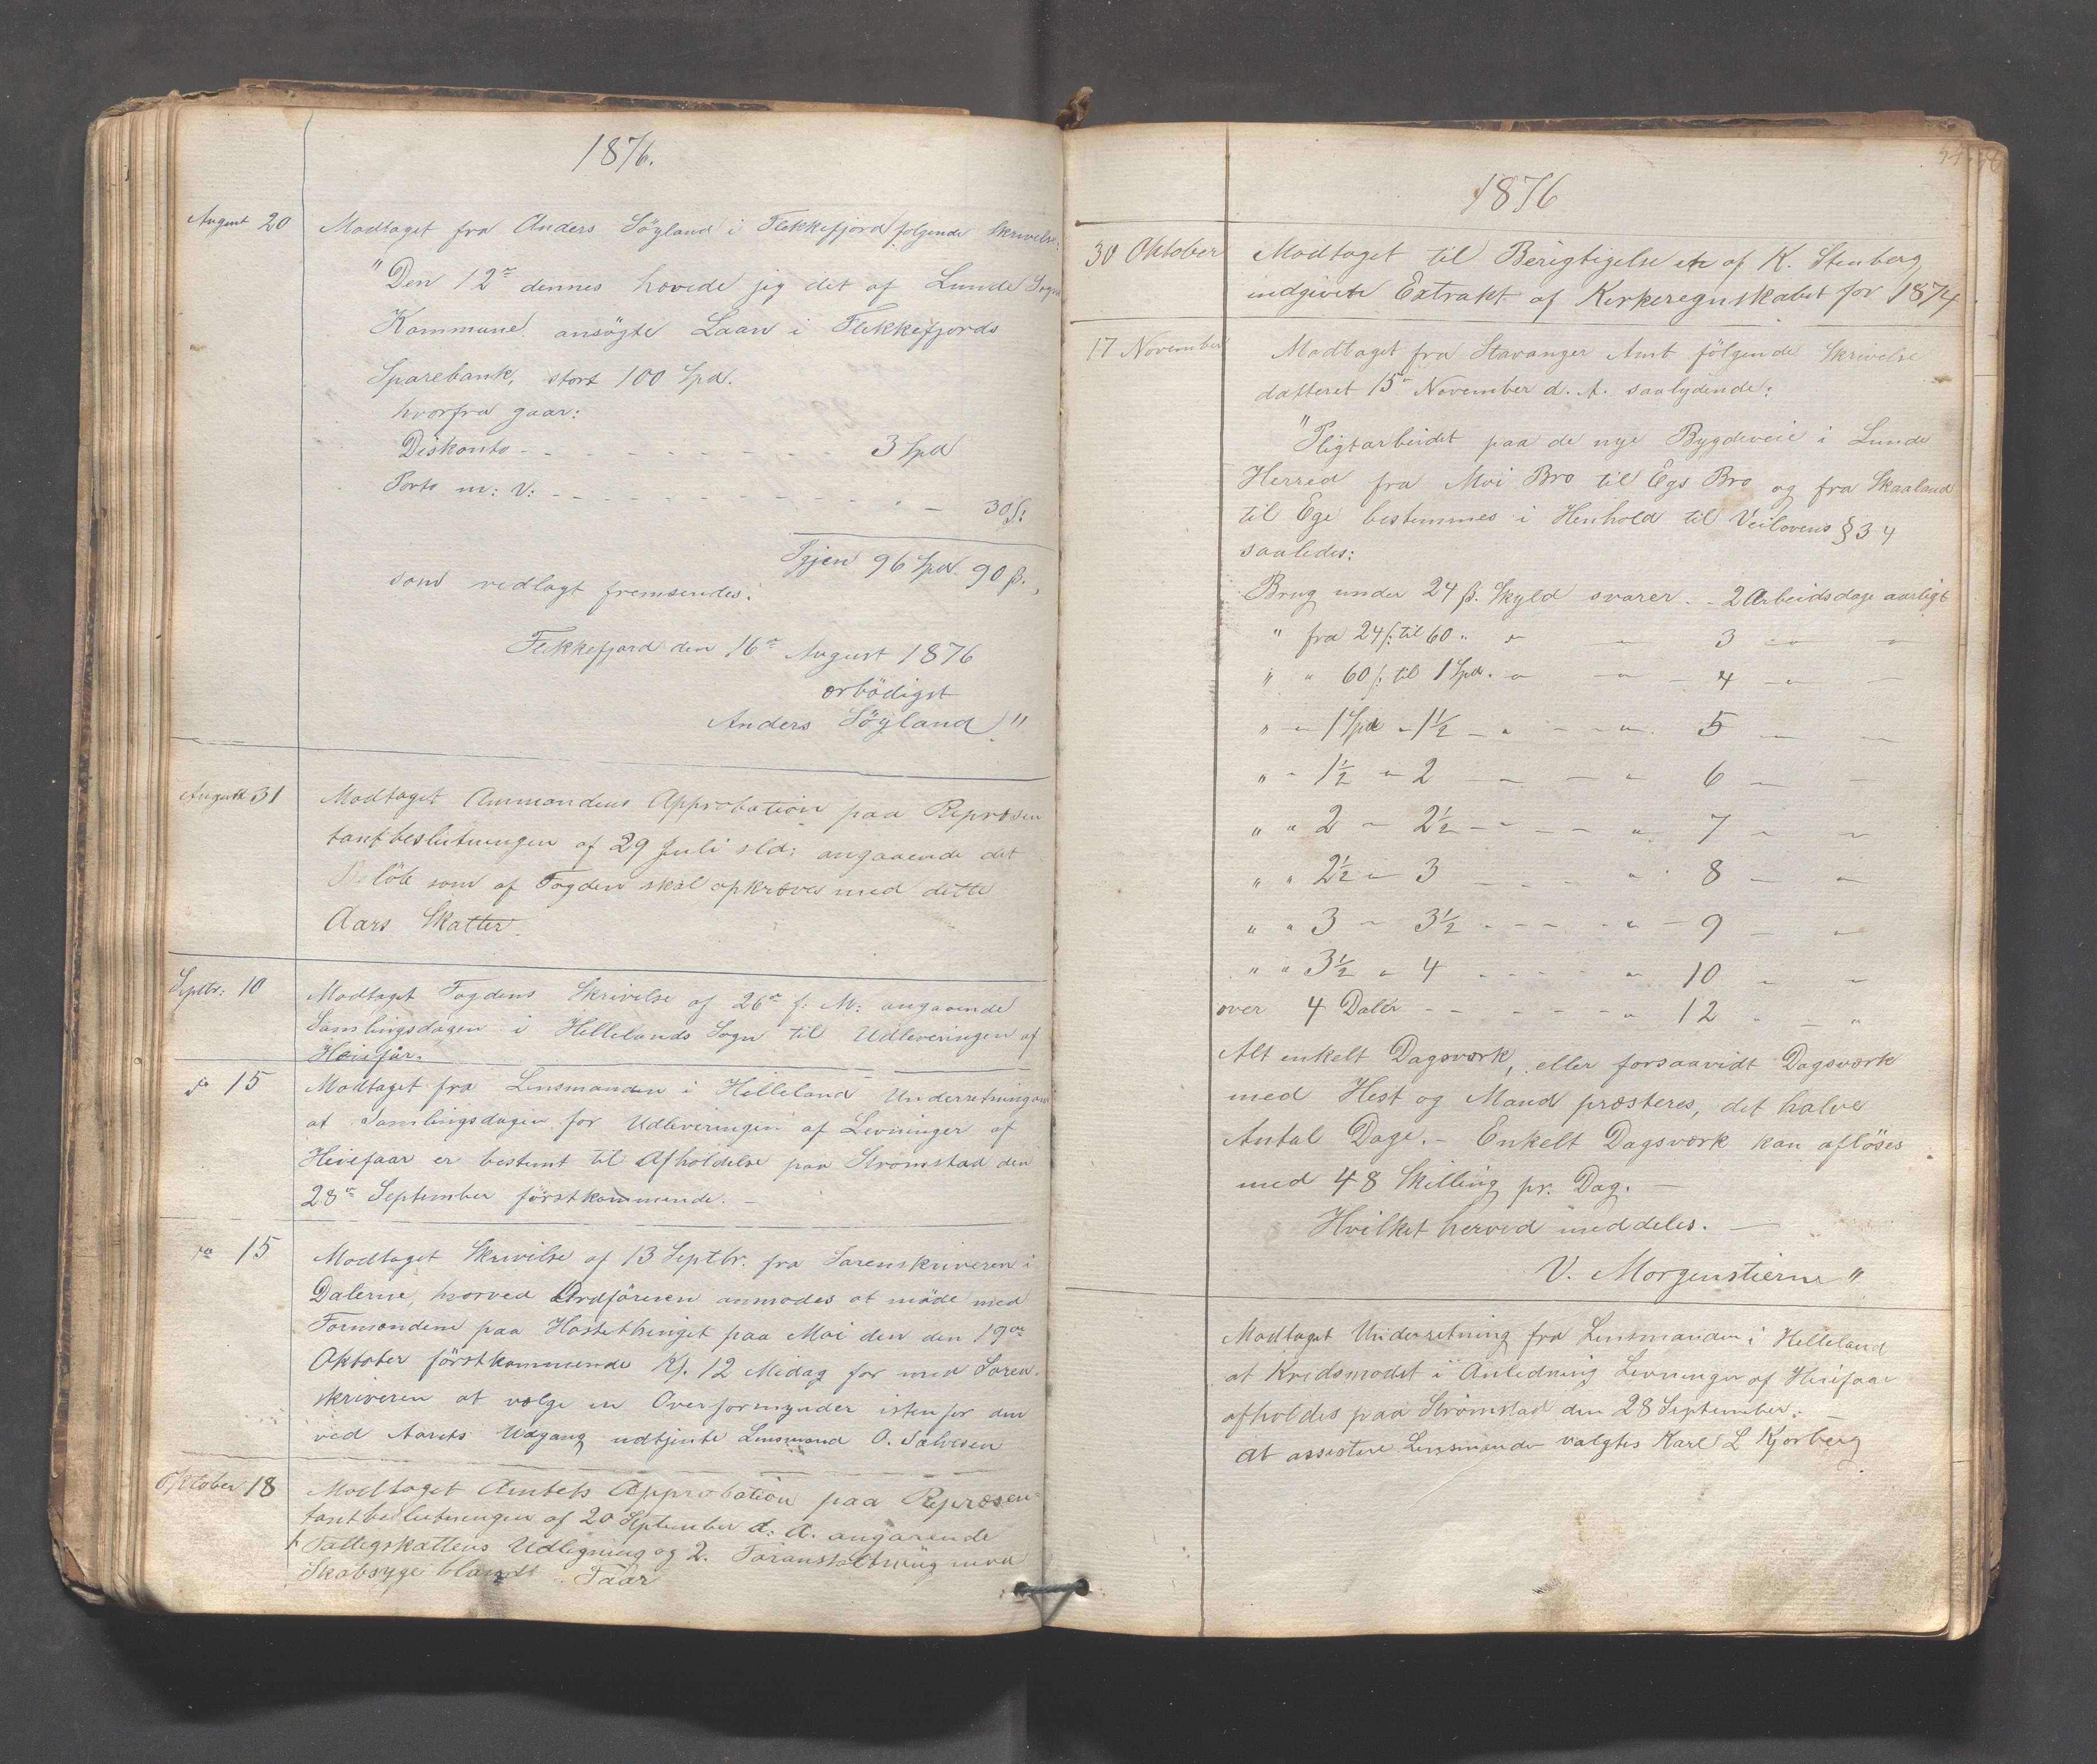 1876.
August 20 Modtaget fra Anders Söyland i Flekkefjord følgende Skrivelse:
"Den 12te dennes hævede jeg det af Lunde Sogns
Kommune ansögte Laan i Flekkefjords
Sparebank, stort 100 Spd.
hvorfra gaar:
Diskonto - - - - - - - - - 3 Spd
Porto m: V: - - - - - - - - - - - 30 ß:
Igjen 96 Spd. 90 ß.,
som vedlagt fremsendes.
Flekkefjord den 16de August 1876
ærbödigst
Anders Söyland."
August 31 Modtaget Amtmandens Approbation paa Repræsen
tantbeslutningen af 29 Juli sld: angaaende det
Belöb som af Fogden skal opkræves med dette
Aars Skatter.
Septbr: 10 Modtaget Fogdens Skrivelse af 26de f: M: angaaende
Samlingsdagen i Hellelands Sogn til Udleveringen af
Heiefår.
do 15 Modtaget fra Lensmanden i Helleland Underretning om
at Samlingsdagen for Udleveringen af Levninger af
Heiefaar er bestemt til Afholdelse paa Strömstad den
28de September förstkommende. -
do 15 Modtaget Skrivelse af 13 Septbr. fra Sorenskriveren i
Dalerne, hvorved Ordföreren anmodes at möde med
Formændene paa Höstethinget paa Moi den den 19de
Oktober förstkommende Kl. 12 Midag for med Soren-
skriveren at vælge en Overformynder istenfor den
ved Aarets Udgang udtjente Lensmand O. Salvesen
Oktober 18 Modtaget Amtets Approbation paa Repræsen-
tantbeslutningen af 20 September d: A. angaaende
1. Fattigskattens Udligning og 2. Foranstaltning mod
Skabsyge blandt Faar
1876
30 Oktober Modtaget til Berigtigelse en af K. Stenberg
indgivete Extrakt af Kirkeregnskabet for 1874
17 November Modtaget fra Stavanger Amt fölgende Skrivelse
datteret 15de November d. A. saalydende:
"Pligtarbeidet paa de nye Bygdeveie i Lunde
Herred fra Moi Bro til Egs Bro og fra Skaaland
til Ege bestemmes i Henhold til Veilovens § 34
saaledes:
Brug under 24 ß. Skyld svarer - 2 Arbeidsdage aarligt
" fra 24 ß: til 60 " " - " - 3 - " - "
" " 60 ß: til 1 Spd. - " - " - 4 - " - -
" - 1 Spd - 1½ - " - - - " 5 - -
" - 1½ - 2 - - - " 6 - -
" " 2 - 2½ - - - - " 7 - -
" " 2½ - 3 - - - " 8 - "
" " 3 - 3½ - - - - " - 9 - "
" " 3½ " 4 - - - - " 10 - -
over 4 Daler - - - - - " 12 " - "
Alt enkelt Dagsværk, eller forsaavidt Dagsværk
med Hest og Mand præsteres, det halve
Antal Dage. - Enkelt Dagsværk kan aflöses
med 48 Skilling pr. Dag. -
Hvilket herved meddeles. -
V. Morgenstierne "
Modtaget Underretning fra Lensmanden i Helleland
at Kredsmödet i Anledning Levninger af Heiefaar
afholdes paa Strömstad den 28 September: -
at assistere Lensmanden valgtes Karl L Kjörberg